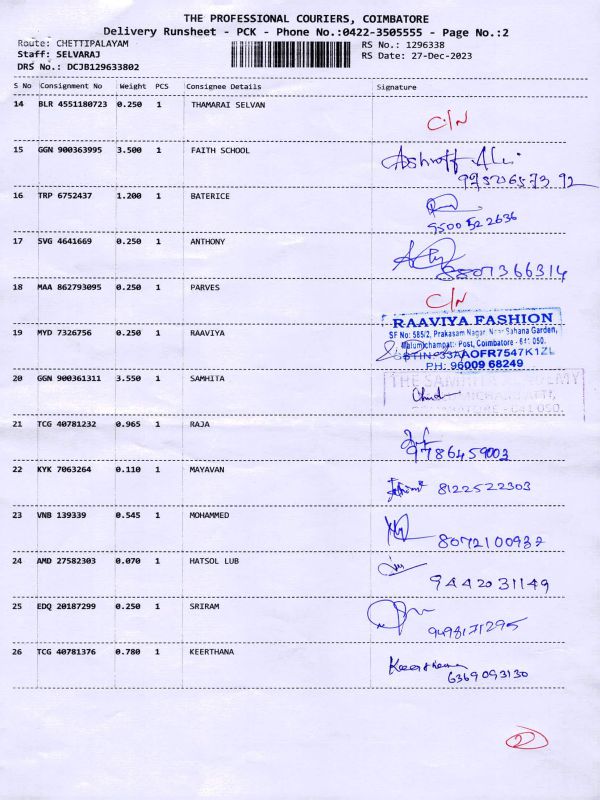 THE PROFESSIONAL COURIERS, COIMBATORE
Delivery Runsheet - PCK - Phone No.:0422-3505555 - Page No.:2
Route: CHETTIPALAYAM RS No.: 1296338
Staff: SELVARAJ RS Date: 27-Dec-2023
DRS No.: DCJB129633802
S No Consignment No Weight PCS Consignee Details Signature
14 BLR 4551180723 0.250 1 THAMARAI SELVAN
C/N
15 GGN 900363995 3.500 1 FAITH SCHOOL
Ashroff Ali
16 TRP 6752437 1.200 1 BATERICE
9500 52 2636
17 SVG 4641669 0.250 1 ANTHONY
8807366314
18 MAA 862793095 0.250 1 PARVES
C/N
RAAVIYA FASHION
SF No: 585/2, Prakasam Nagar, Near Sahana Garden,
19 MYD 7326756 0.250 1 RAAVIYA
Malumichampatti Post, Coimbatore - 641 050.
GSTIN: 33AAOFR7547K1ZL
PH: 96009 68249
20 GGN 900361311 3.550 1 SAMHITA
21 TCG 40781232 0.965 1 RAJA
9786459003
22 KYK 7063264 0.110 1 MAYAVAN
8122522303
23 VNB 139339 0.545 1 MOHAMMED
8072100932
24 AMD 27582303 0.070 1 HATSOL LUB
9442031149
25 EDQ 20187299 0.250 1 SRIRAM
9498171295
26 TCG 40781376 0.780 1 KEERTHANA
Keerthana
6369093130
2